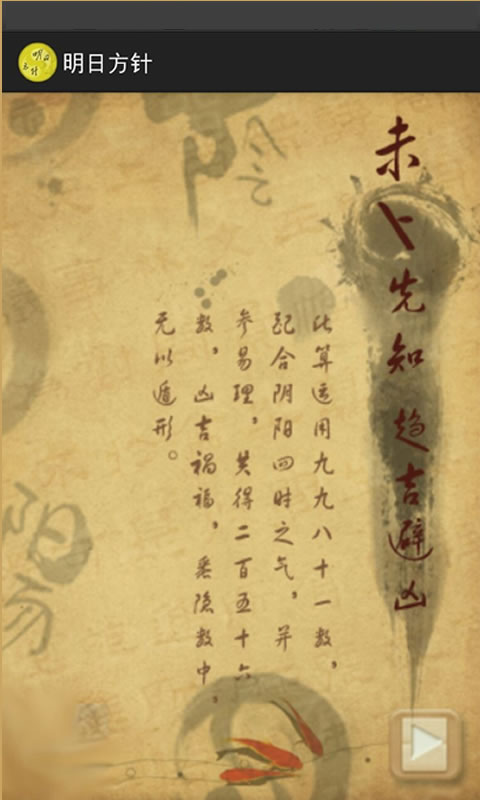 明日方针
未卜先知趋吉避凶
此算运用九九八十一数，
配合阴阳四时之气，并
参易理，共得二百五十六
数，凶吉祸福，悉隐数中，
无以遁形。
阳